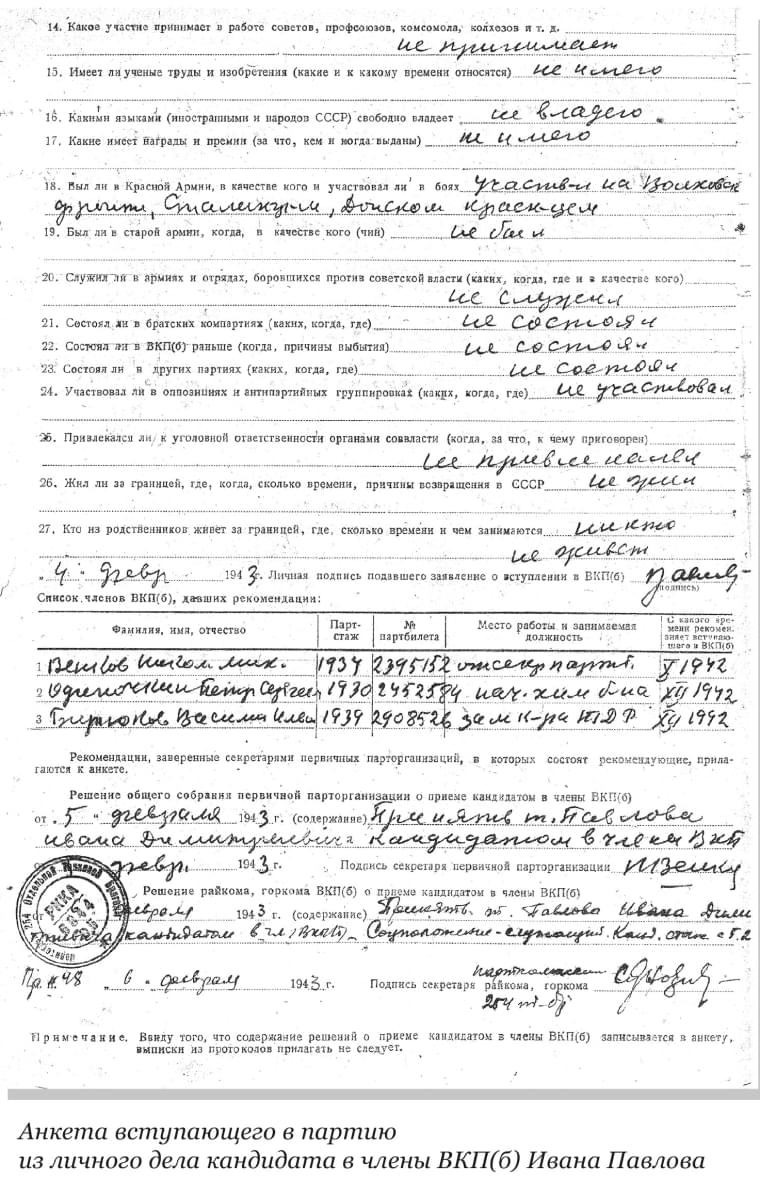 14. Какое участие принимает в работе советов, профсоюзов, комсомола, колхозов и т. д.
не принимает
15. Имеет ли ученые труды и изобретения (какие и к какому времени относятся) не имею
16. Какими языками (иностранными и народов СССР) свободно владеет не владею
17. Какие имеет награды и премии (за что, кем и когда выданы) не имею
18. Был ли в Красной Армии, в качестве кого и участвовал ли в боях участв-л на Волховск
фронте, Донском
19. Был ли в старой армии, когда, в качестве кого (чин) не был
20. Служил ли в армиях и отрядах, боровшихся против советской власти (каких, когда, где и в качестве кого)
не служил
21. Состоял ли в братских компартиях (каких, когда, где) не состоял
22. Состоял ли в ВКП(б) раньше (когда, причины выбытия) не состоял
23. Состоял ли в других партиях (каких, когда, где) не состоял
24. Участвовал ли в оппозициях и антипартийных группировках (каких, когда, где) не участвовал
25. Привлекался ли к уголовной ответственности органами соввласти (когда, за что, к чему приговорен)
не привлекался
26. Жил ли за границей, где, когда, сколько времени, причины возвращения в СССР не жил
27. Кто из родственников живет за границей, где, сколько времени и чем занимаются никто
не живет
"4" февр 1943 г. Личная подпись подавшего заявление о вступлении в ВКП(б)
(подпись)
Список членов ВКП(б), давших рекомендации:
Фамилия, имя, отчество Парт-стаж № партбилета Место работы и занимаемая должность С какого времени рекомен. знает вступающего в ВКП(б)
1 2395152 V 1942
2 Петр 1930 2452584 нач. хим XII 1942
3 Бирюков Василий 1939 2908526 зам к-ра XII 1942
Рекомендации, заверенные секретарями первичных парторганизаций, в которых состоят рекомендующие, прила-
гаются к анкете.
Решение общего собрания первичной парторганизации о приеме кандидатом в члены ВКП(б)
от "5" февраля 1943 г. (содержание) Принять т. Павлова
Ивана Димитриевича кандидатом в члены ВКП
февр. 1943 г. Подпись секретаря первичной парторганизации
Решение райкома, горкома ВКП(б) о приеме кандидатом в члены ВКП(б)
от февраля 1943 г. (содержание) Принять т. Павлова Ивана Дими
триевича кандидатом в чл/ВКПб/. Соцположение - служащий. Канд. стаж с
Пр. № 48 "6" февраля 1943 г. Подпись секретаря райкома, горкома
254
Примечание. Ввиду того, что содержание решений о приеме кандидатом в члены ВКП(б) записывается в анкету,
выписки из протоколов прилагать не следует.
Анкета вступающего в партию
из личного дела кандидата в члены ВКП(б) Ивана Павлова